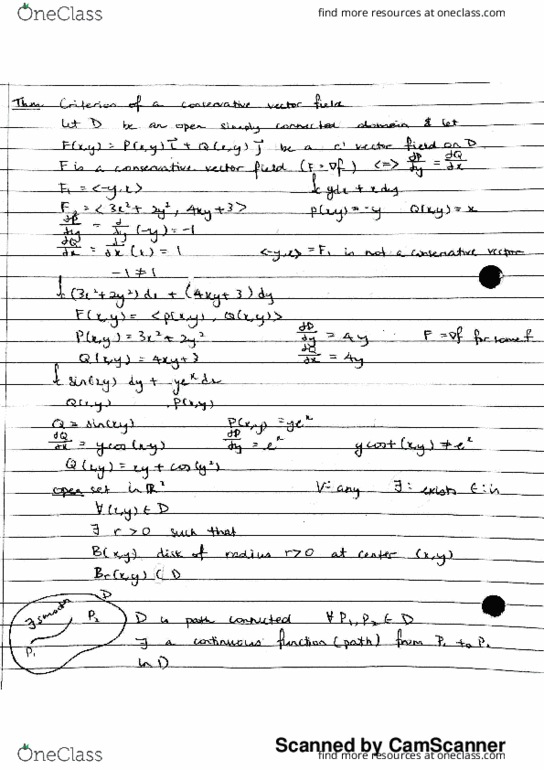 OneClass
find more resources at oneclass.com
Thm Criterion of a conservative vector field
Let D be an open simply connected domain & let
F(x,y) = P(x,y) i + Q(x,y) j be a c' vector field on D
F is a conservative vector field (F = ∇f) <=> dP/dy = dQ/dx
F₁ = <-y, x>
∫c ydx + x dy
F₂ = < 3x² + 2y², 4xy + 3 >
P(x,y) = -y Q(x,y) = x
dP/dy = d/dy (-y) = -1
dQ/dx = d/dx (x) = 1
<-y,x> = F₁ is not a conservative vector
-1 ≠ 1
∫ (3x² + 2y²) dx + (4xy + 3) dy
F(x,y) = <P(x,y), Q(x,y)>
P(x,y) = 3x² + 2y²
dP/dy = 4y
F = ∇f for some f
Q(x,y) = 4xy + 3
dQ/dx = 4y
∫ sin(xy) dy + ye^x dx
Q(x,y) P(x,y)
Q = sin(xy)
P(x,y) = ye^x
dQ/dx = y cos(xy)
dP/dy = e^x
y cos(xy) ≠ e^x
Q(x,y) = xy + cos(y²)
open set in ℝ²
∀ = any ∃ : exists ∈ : in
∀(x,y) ∈ D
∃ r > 0 such that
B(x,y) disk of radius r>0 at center (x,y)
Br(x,y) ⊂ D
D
∃ smooth
P₂
P₁
D is path connected ∀ P₁, P₂ ∈ D
∃ a continuous function (path) from P₁ to P₂
in D
Scanned by CamScanner
OneClass
find more resources at oneclass.com